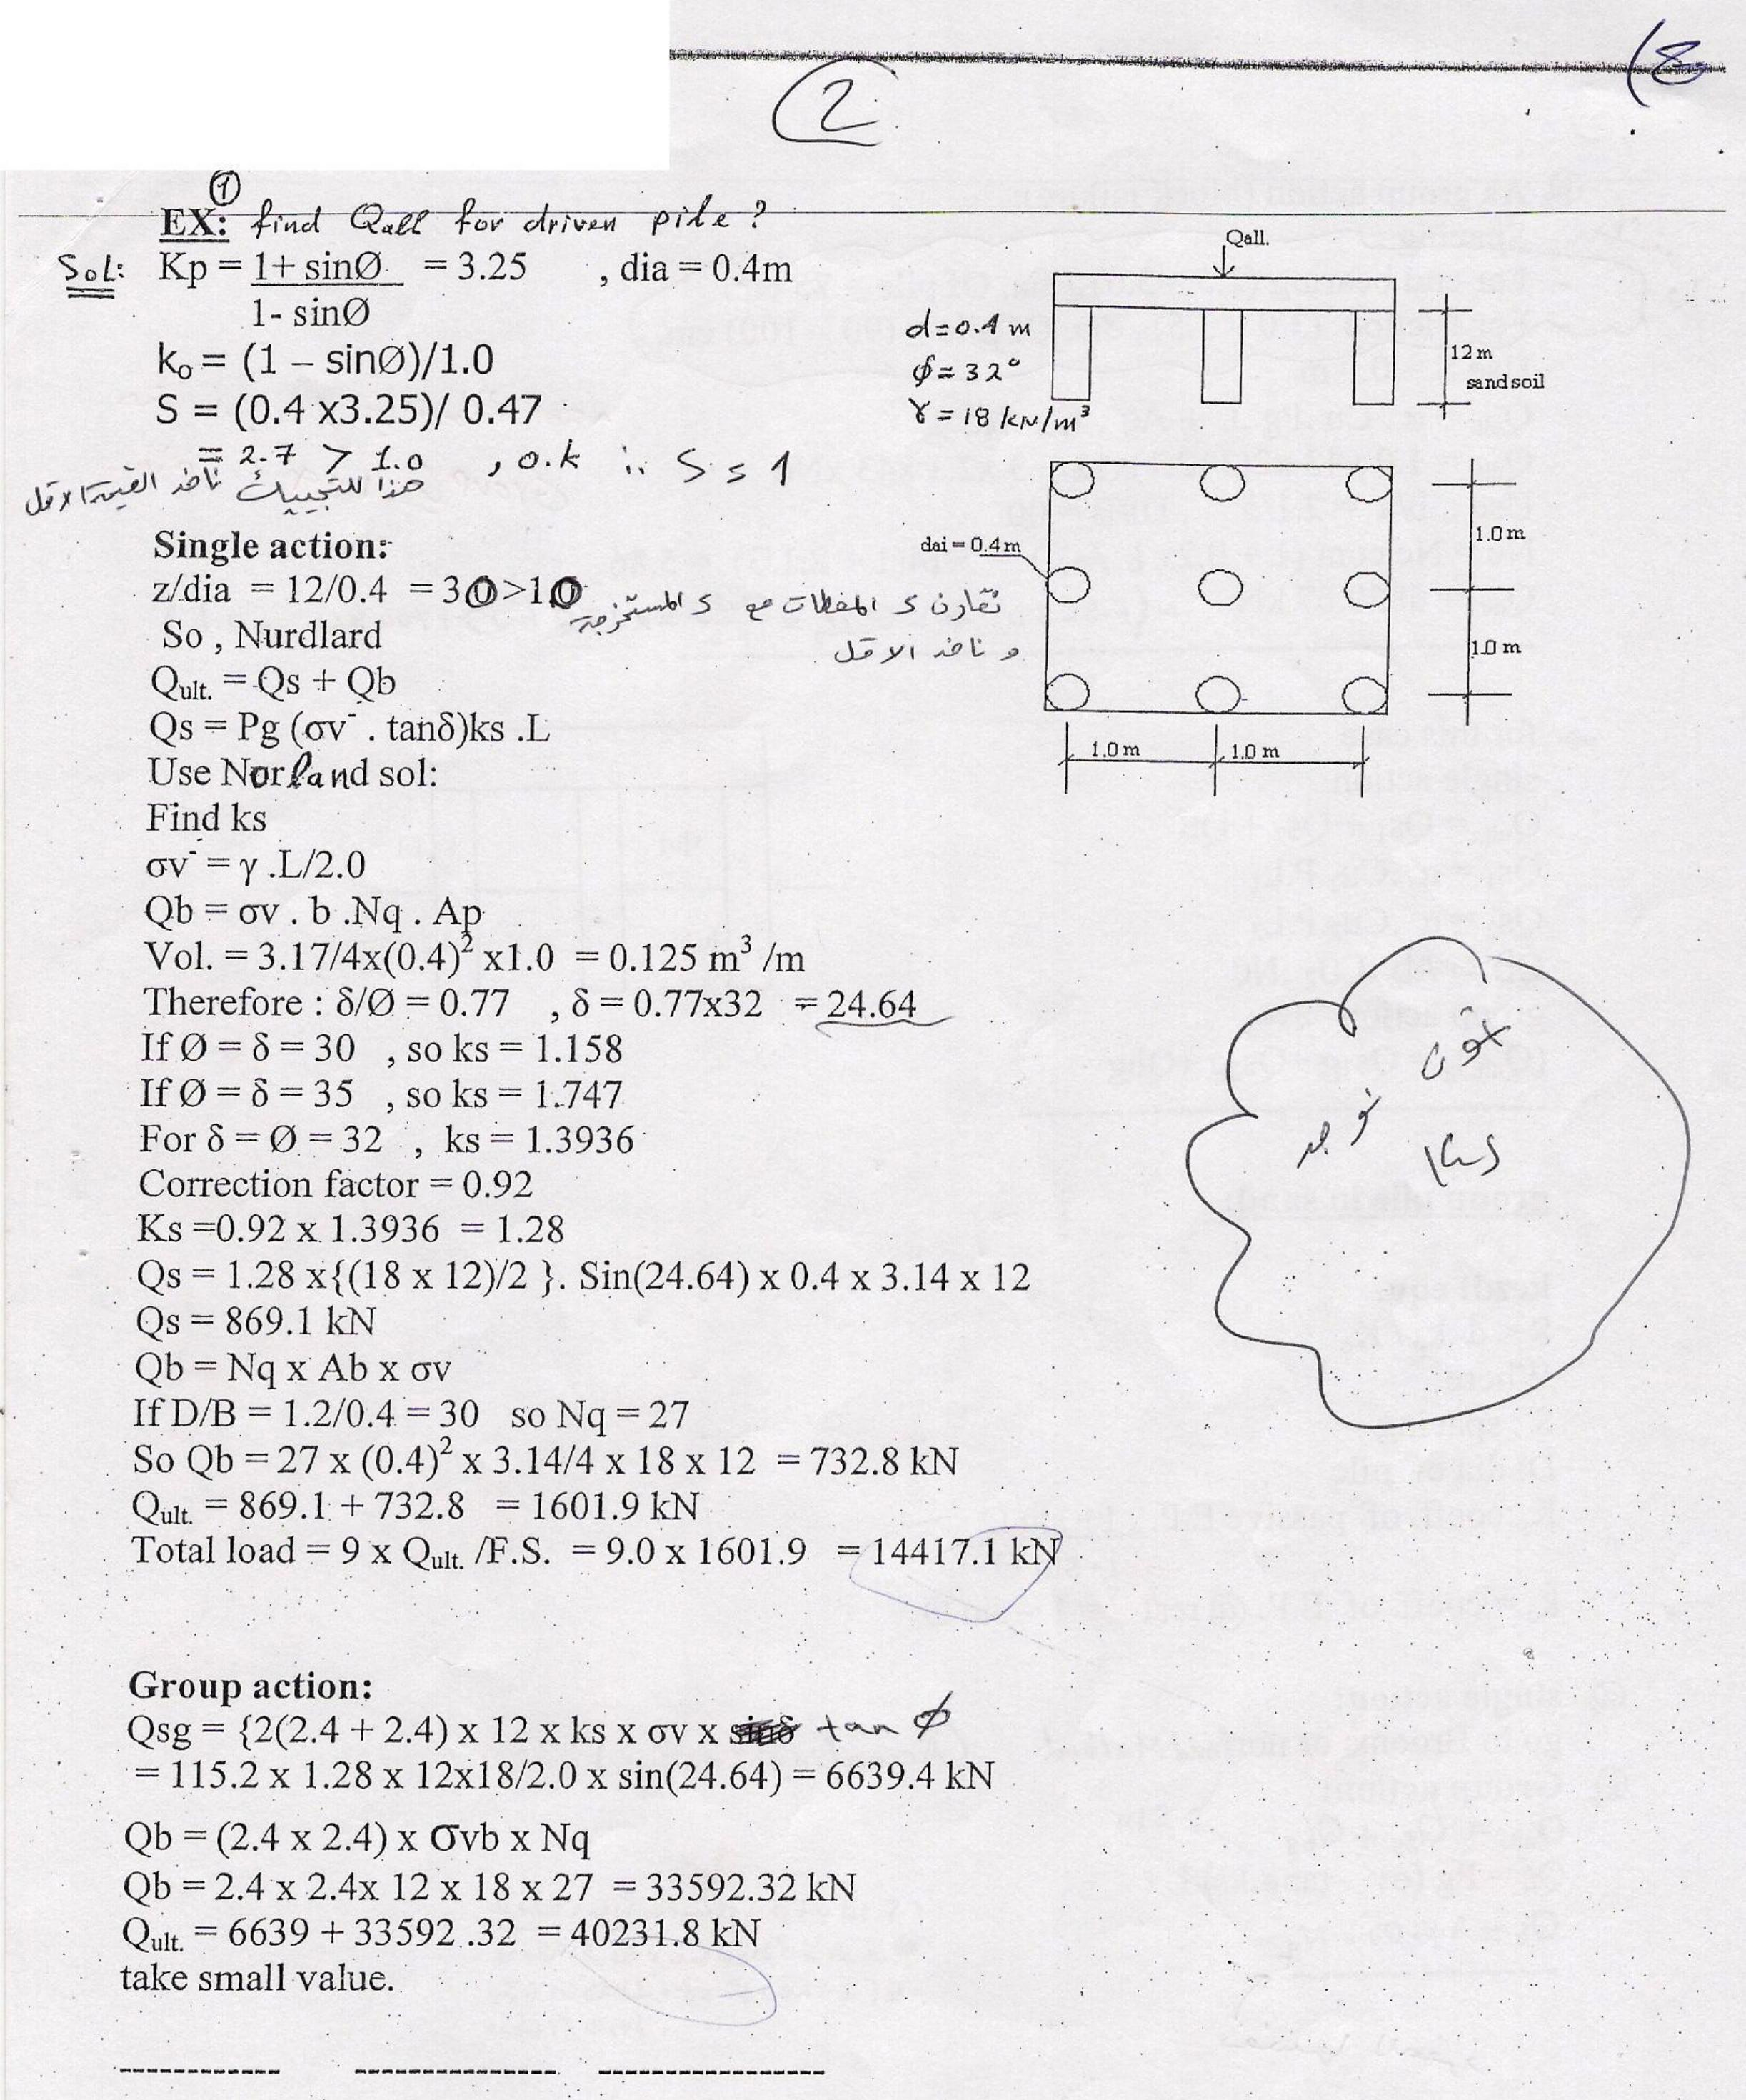 2
(8
①
EX: find Qall for driven pile?
Sol: Kp = 1+ sinØ = 3.25 , dia = 0.4m
1- sinØ
ko = (1 – sinØ)/1.0
S = (0.4 x3.25)/ 0.47
= 2.7 > 1.0 , o.k ∴ S = 1
هذا للتجييك نأخذ القيمة الاقل
Qall.
d=0.4 m
ϕ = 32°
γ = 18 kN/m³
12m
sand soil
dai = 0.4m
1.0 m
1.0 m
1.0 m
1.0 m
Single action:
z/dia = 12/0.4 = 30>10
نقارن s المعطات مع s المستخرجة
و ناخذ الاقل
So , Nurdlard
Qult. = Qs + Qb
Qs = Pg (σv⁻ . tanδ)ks .L
Use Norland sol:
Find ks
σv⁻ = γ .L/2.0
Qb = σv . b .Nq . Ap
Vol. = 3.17/4x(0.4)² x1.0 = 0.125 m³ /m
Therefore : δ/Ø = 0.77 , δ = 0.77x32 = 24.64
If Ø = δ = 30 , so ks = 1.158
If Ø = δ = 35 , so ks = 1.747
For δ = Ø = 32 , ks = 1.3936
Correction factor = 0.92
Ks =0.92 x 1.3936 = 1.28
Qs = 1.28 x{(18 x 12)/2 }. Sin(24.64) x 0.4 x 3.14 x 12
Qs = 869.1 kN
Qb = Nq x Ab x σv
If D/B = 1.2/0.4 = 30 so Nq = 27
So Qb = 27 x (0.4)² x 3.14/4 x 18 x 12 = 732.8 kN
Qult. = 869.1 + 732.8 = 1601.9 kN
Total load = 9 x Qult. /F.S. = 9.0 x 1601.9 = 14417.1 kN
Group action:
Qsg = {2(2.4 + 2.4) x 12 x ks x σv x tan ϕ
= 115.2 x 1.28 x 12x18/2.0 x sin(24.64) = 6639.4 kN
Qb = (2.4 x 2.4) x σvb x Nq
Qb = 2.4 x 2.4x 12 x 18 x 27 = 33592.32 kN
Qult. = 6639 + 33592.32 = 40231.8 kN
take small value.